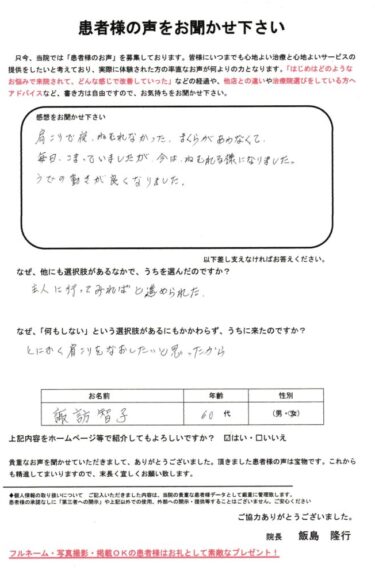 患者様の声をお聞かせ下さい
只今、当院では「患者様のお声」を募集しております。皆様にいつまでも心地よい治療と心地よいサービスの
提供をしたいと考えており、実際に体験された方の率直なお声が何よりの力となります。「はじめはどのような
お悩みで来院されて、どんな感じで改善していった」などの経過や、他店との違いや治療院選びをしている方へ
アドバイスなど、書き方は自由ですので、お気持ちをお聞かせ下さい。
感想をお聞かせ下さい
肩こりで夜、ねむれなかった。まくらがあわなくて、
毎日、こまっていましたが今は、ねむれる様になりました。
うでの動きが良くなりました。
以下差し支えなければお答えください。
なぜ、他にも選択肢があるなかで、うちを選んだのですか？
主人に行ってみればと進められた。
なぜ、「何もしない」という選択肢があるにもかかわらず、うちに来たのですか？
とにかく肩こりをなおしたいと思ったから
お名前 年齢 性別
諏訪智子 60 代 （男・女）
上記内容をホームページ等で紹介してもよろしいですか？ ☑はい・□いいえ
貴重なお声を聞かせていただきまして、ありがとうございました。頂きました患者様の声は宝物です。これから
も精進してまいりますので、末長く宜しくお願い致します。
◆個人情報の取り扱いについて ご記入いただきました内容は、当院の貴重な患者様データとして厳重に管理致します。
患者様の承諾なしに「第三者への開示」や上記以外での使用、外部への開示・提供等することはございません。ご安心ください
ご協力ありがとうございました。
院長 飯島 隆行
フルネーム・写真撮影・掲載ＯＫの患者様はお礼として素敵なプレゼント！